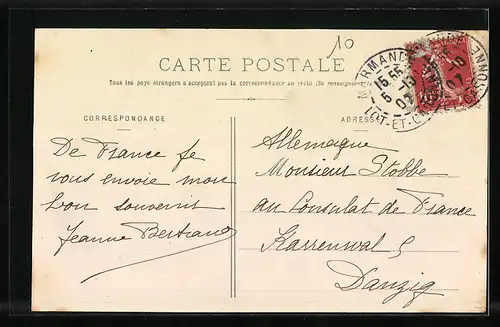 10
CARTE POSTALE
Tous les pays étrangers n'acceptent pas la correspondance au recto (Se renseigner
CORRESPONDANCE
ADRESSE
MARMANDE
15 55
5 - 10
07
LOT-ET-GARONNE
De France je
vous envoie mon
bon souvenir
Jeanne Bertrand
Allemagne
Monsieur Stobbe
au Consulat de France
Karrenwal 5
Danzig